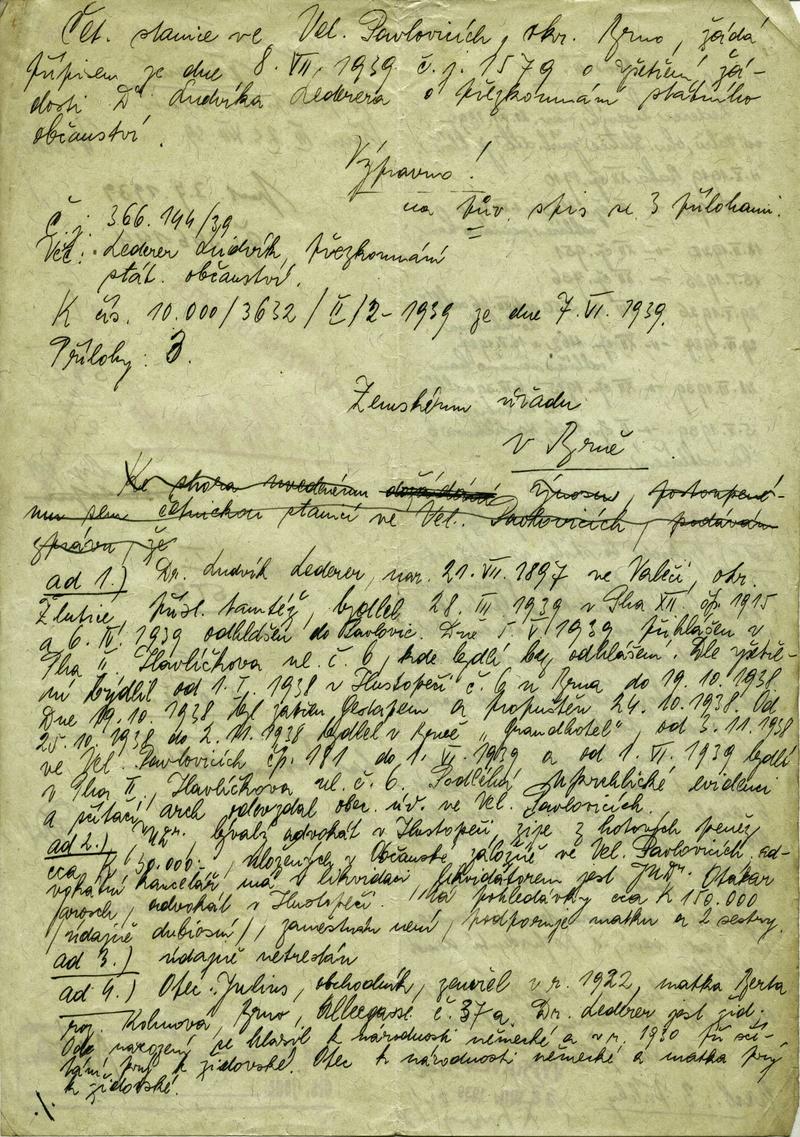 Čet. stanice ve Vel. Pavlovicích, okr. Brno, žádá
přípisem ze dne 8. VII. 1939 č. j. 1579 o zjištění žá-
dosti Dr Ludvíka Lederera o přezkoumání státního
občanství.
Výpravno!
na pův. spis se 3 přílohami.
Č. j. 366.194/39
Věc: Lederer Ludvík, přezkoumání
stát. občanství.
K čís. 10.000/3632/II/2-1939 ze dne 7. VI. 1939.
Přílohy: 3.
Zemskému úřadu
v Brně
Ke shora uvedenému výnosu, postoupené-
mu sem četnickou stanicí ve Vel. Pavlovicích, podávám
zprávu, že
ad 1.) Dr. Ludvík Lederer, nar. 21. VII. 1897 ve Valči, okr.
Žlutice, přísl. tamtéž, bydlel 28. III 1939 v Praha XII. čp. 1915
a 6. IV. 1939 odhlášen do Pavlovic. Dne 5. V. 1939 přihlášen v
Praha II Havlíčkova ul. č. 6, kde bydlí bez odhlášení. Dle zjiště-
ní bydlil od 1. I. 1938 v Hustopeči č. 6 u Brna do 19. 10. 1938
Dne 19. 10. 1938 byl zatčen Gestapem a propuštěn 24. 10. 1938. Od
25. 10. 1938 do 2. 11. 1938 bydlel v Brně „Grandhotel", od 3. 11. 1938
ve Vel. Pavlovicích čp. 181 do 1. VI. 1939 a od 1. VI. 1939 bydlí
v Praha II, Havlíčkova ul. č. 6. Podléhá uprchlické evidenci
a sčítací arch odevzdal obec. úř. ve Vel. Pavlovicích.
ad 2.) býv. advokát v Hustopeči, žije z hotových peněz
cca K 0.000.-, uložených v Občanské záložně ve Vel. Pavlovicích, ad-
vokátní kancelář má v likvidaci, likvidátorem jest JUDr. Otakar
Jarosch, advokát v Hustopeči. Má pohledávky cca K 150.000
/údajně dubiosní/, zaměstnán není, podporuje matku a 2 sestry.
ad 3.) údajně netrestán
ad 4.) Otec: Julius, obchodník, zemřel v r. 1922, matka Berta
roz. Kohnová, Brno, č. 37a. Dr. Lederer jest žid.
Od narození se hlásil k národnosti německé a v r. 1930 při sčí-
tání prý k židovské. Otec k národnosti německé a matka prý
k židovské.